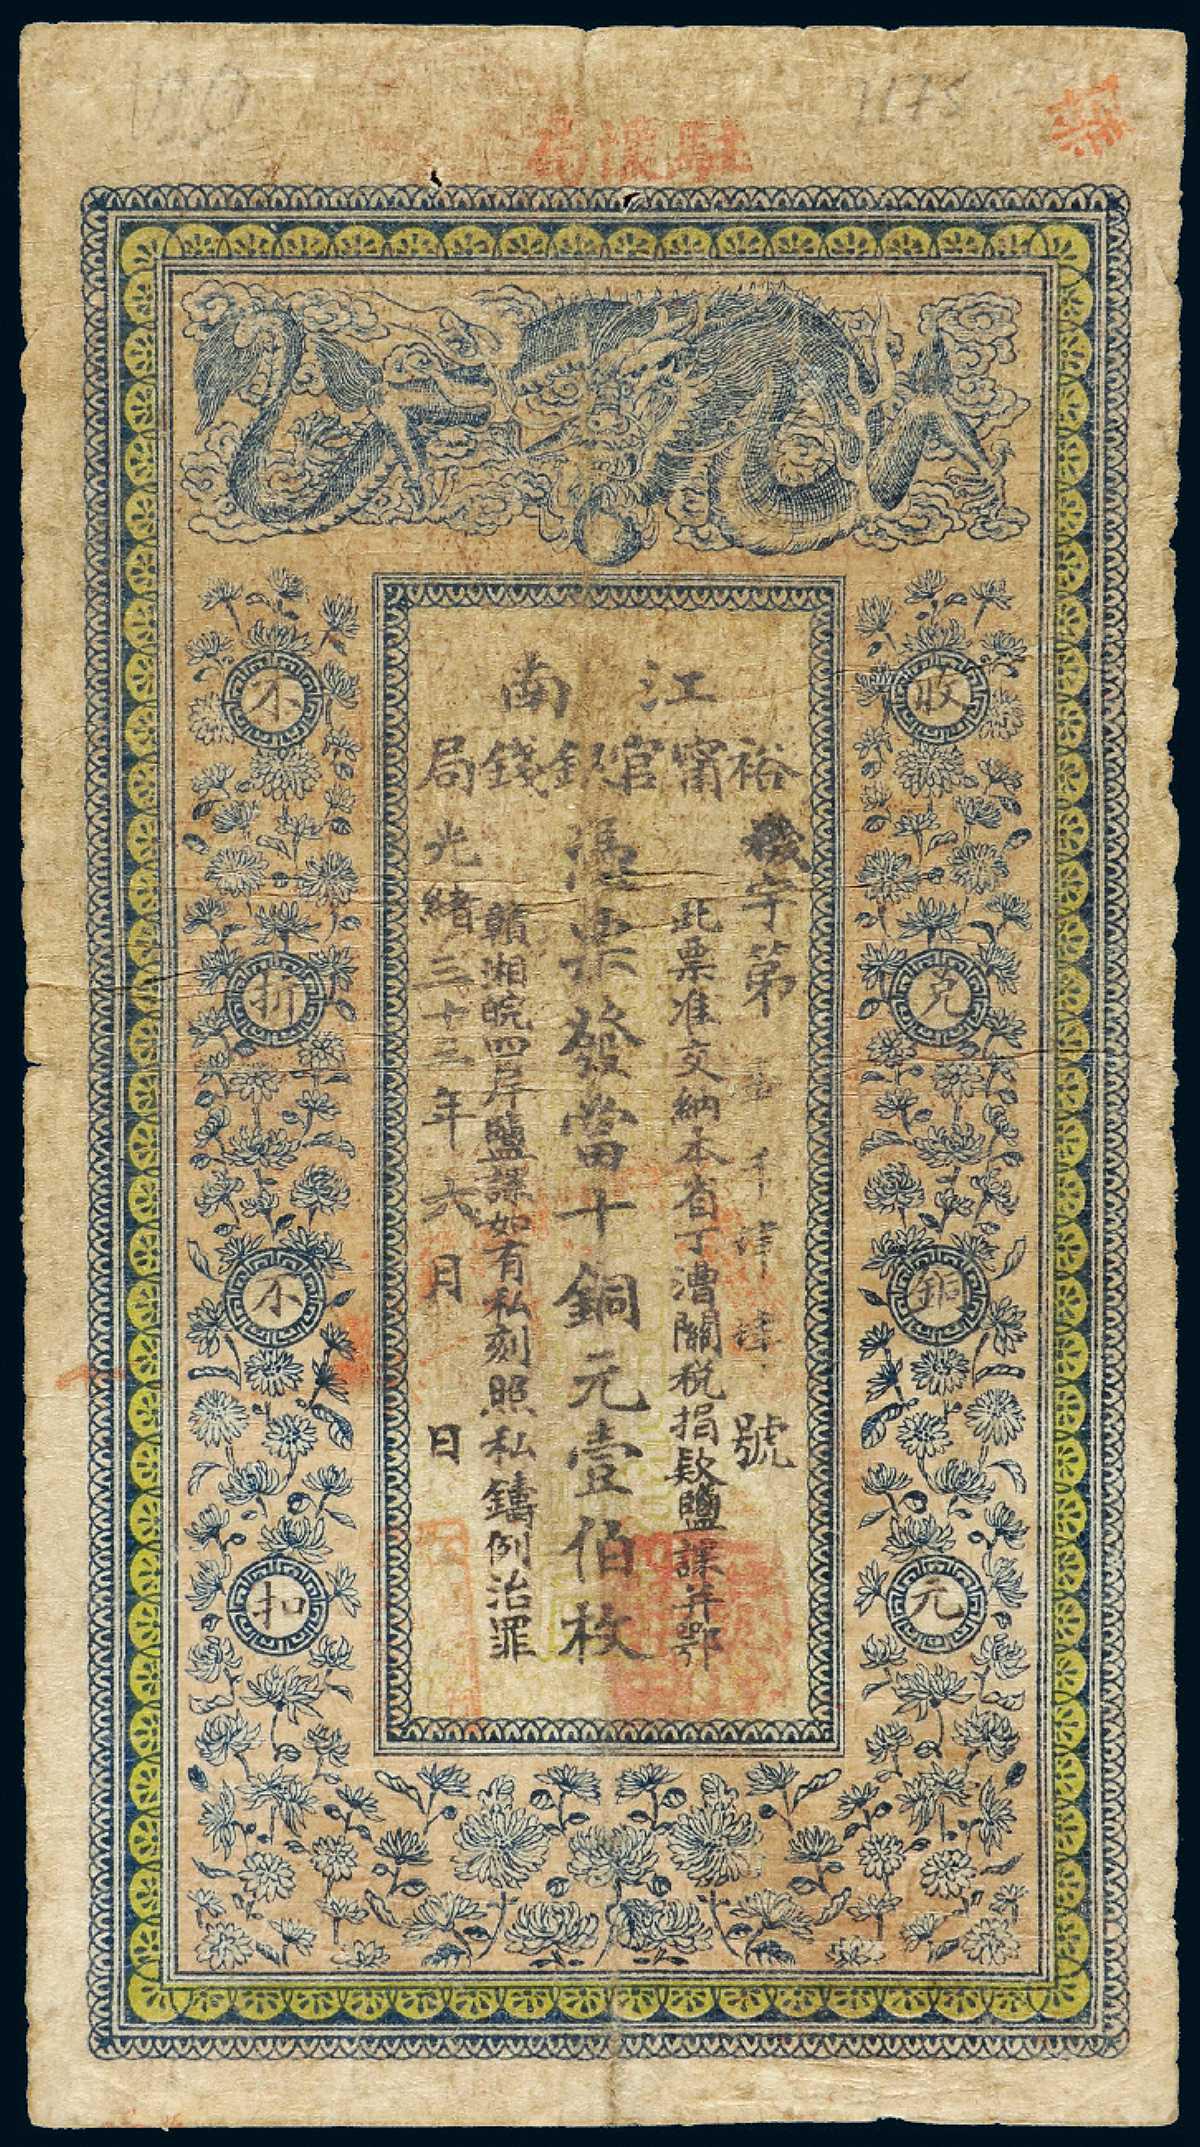 駐滬
江南
裕甯官銀錢局
字第壹千肆肆號
此票准交納本省丁漕關稅捐款鹽課并鄂
憑票發當十銅元壹伯枚
贛湘皖四岸鹽課如有私刻照私鑄例治罪
光緒三十三年六月日
收兌銅元
不折不扣